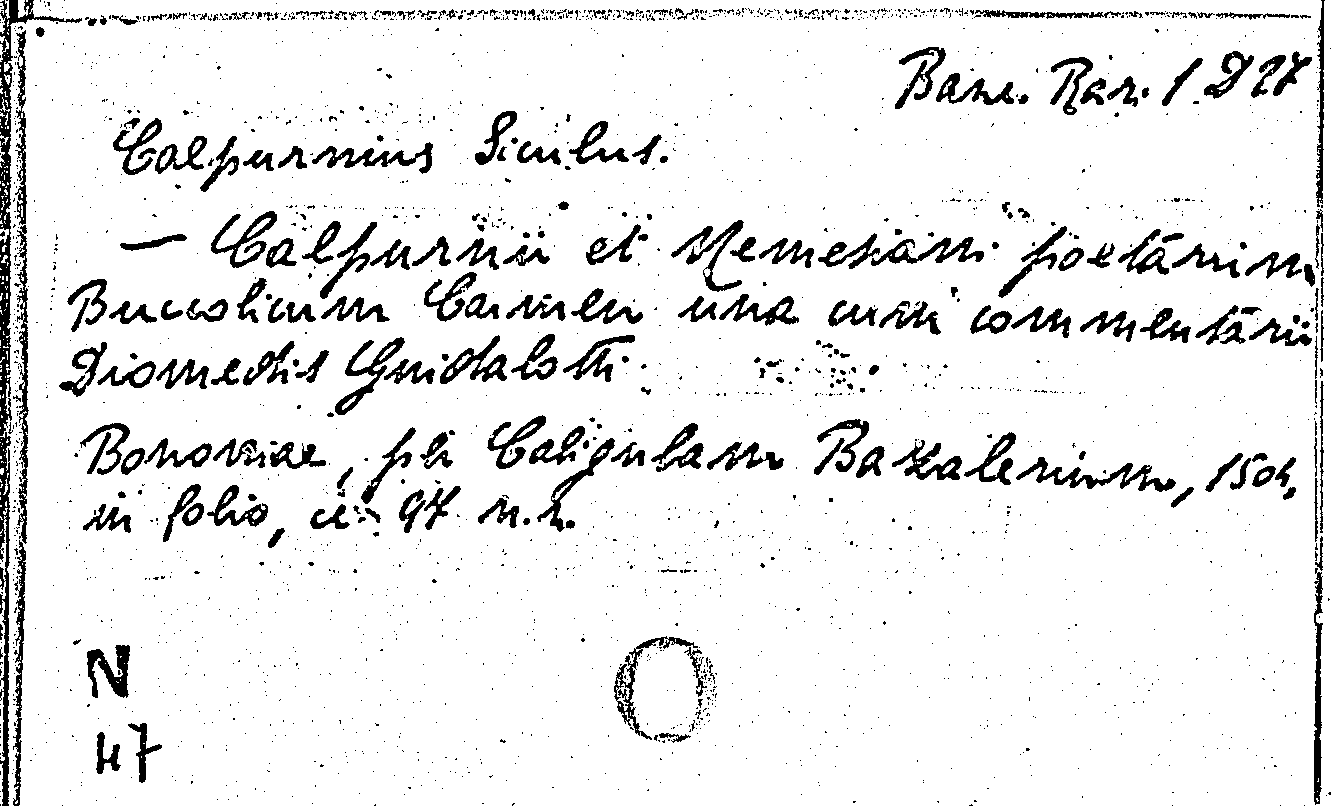 Banc. Rar. 1 D 27
Calpurnius Siculus.
— Calpurnii et Nemesiani poetarum
Buccolicum Carmen una cum commentarii
Diomedis Guidalotti.
Bononiae, per Caligulam Bazalerium, 1504,
in folio, cc. 97 n.n.
N
47